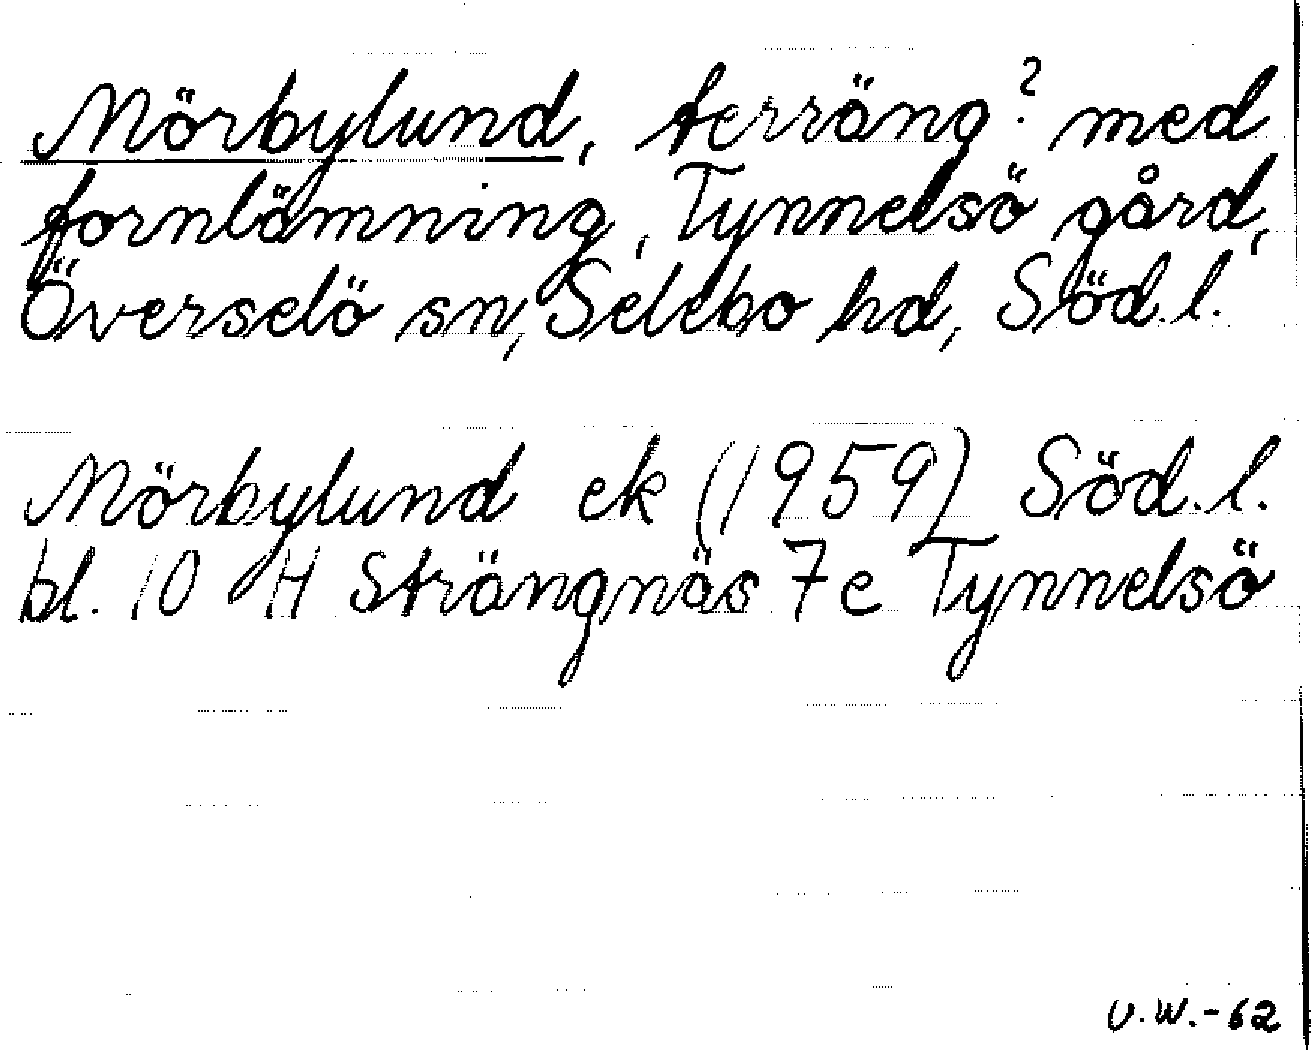 Mörbylund, terräng? med
fornlämning, Tynnelsö gård,
Överselö sn, Selebo hd, Söd.l.
Mörbylund ek (1959) Söd.l.
bl. 10 H Strängnäs 7e Tynnelsö
U.W.-62